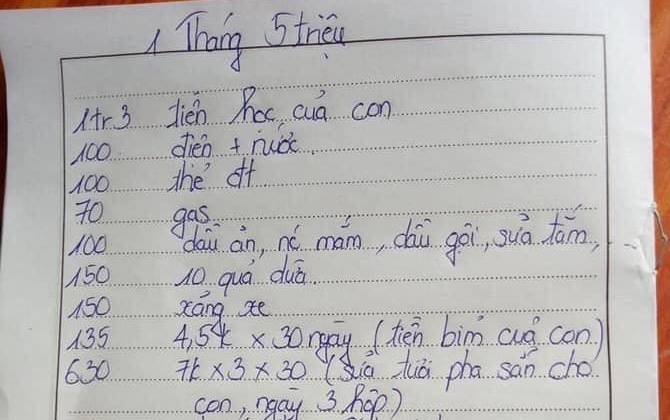 1 Tháng 5 triệu
1tr3 tiền học của con
100 điện + nước.
100 thẻ đt
70 gas
100 dầu ăn, nc mắm, dầu gội, sửa tắm,
150 10 quả dừa.
150 xăng xe
135 4,5k x 30 ngày (tiền bỉm của con)
630 7k x 3 x 30 (sửa tươi pha sẵn cho
con, ngày 3 hộp)